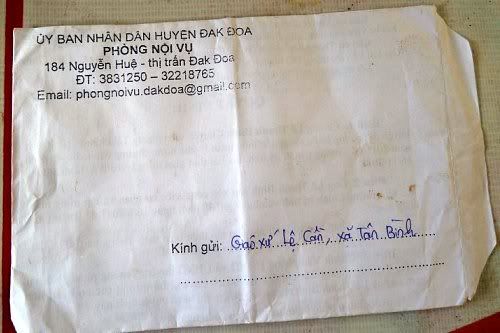 ỦY BAN NHÂN DÂN HUYỆN ĐAK ĐOA
PHÒNG NỘI VỤ
184 Nguyễn Huệ - thị trấn Đak Đoa
ĐT: 3831250 – 32218765
Email: phongnoivu.dakdoa@gmail.com
Kính gửi: Giáo xứ Lệ Cần, xã Tân Bình